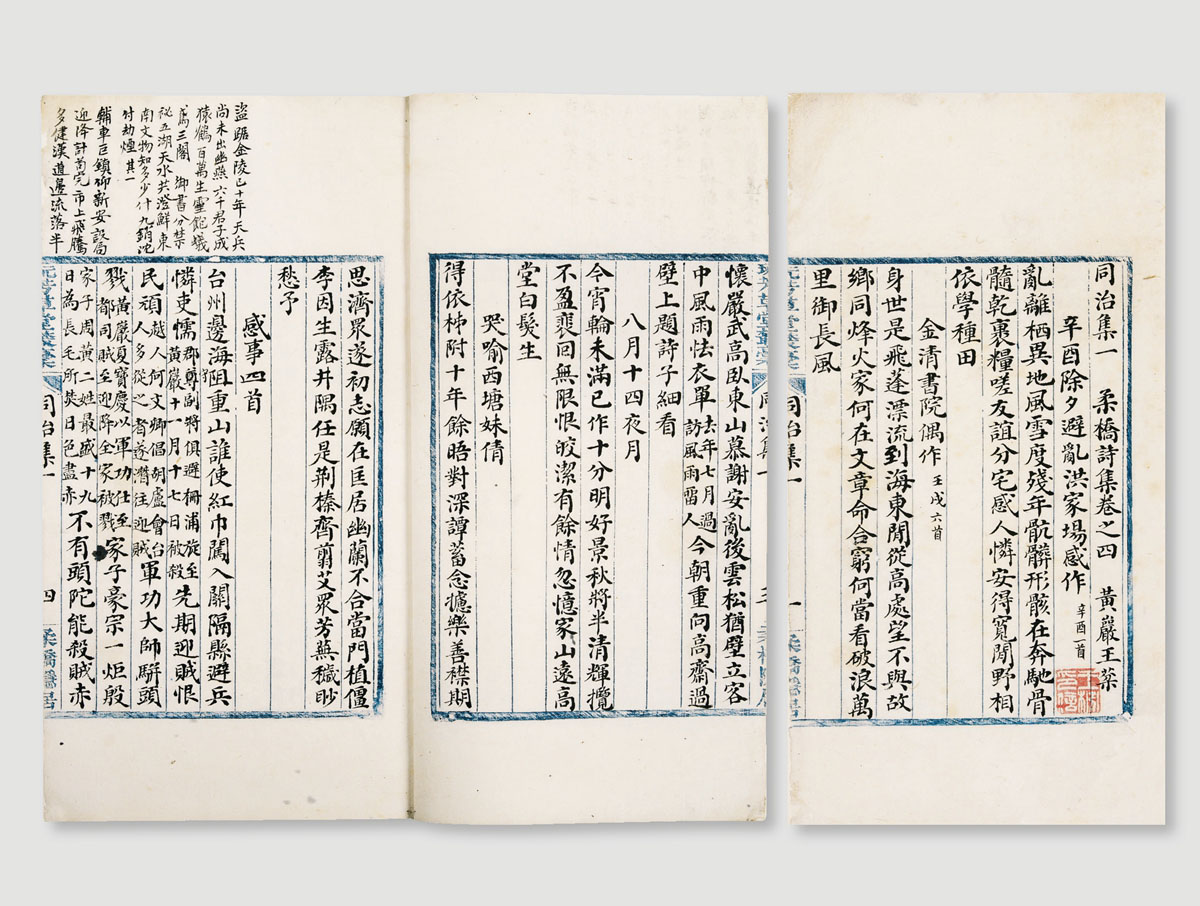 同治集一　柔橋詩集卷之四　黃巖王棻
辛酉除夕避亂洪家場感作 辛酉一首
亂離栖異地風雪度殘年骯髒形骸在奔馳骨
髓乾裹糧嗟友誼分宅感人憐安得寬閒野相
依學種田
金清書院偶作 壬戌六首
身世是飛蓬漂流到海東閒從高處望不與故
鄉同烽火家何在文章命合窮何當看破浪萬
里御長風
同治集一
一
懷嚴武高臥東山慕謝安亂後雲松猶壁立客
中風雨怯衣單 去年七月過訪風雨留人 今朝重向高齋過
壁上題詩子細看
八月十四夜月
今宵輪未滿已作十分明好景秋將半清輝攬
不盈裵回無限恨皎潔有餘情忽憶家山遠高
堂白髮生
哭喻西塘妹倩
得依栘附十年餘晤對深譚蓄念攄樂善襟期
思濟眾遂初志願在匡居幽蘭不合當門植僵
李因生露井隅任是荆榛齊翦艾眾芳蕪穢眇
愁予
感事四首
台州邊海阻重山誰使紅巾闖入關隔縣避兵
憐吏懦 郡尊副將俱避柵浦旋至黃巖十一月十七日被殺 先期迎賊恨
民頑 越人何文卿倡胡盧會台人多從之者遂潛往迎賊 軍功大師駢頭
戮 黃巖夏寶慶以軍功仕至都司賊至迎降全家被戮 家子豪宗一炬殷
家子周黃二姓最盛十九日為長毛所焚日色盡赤 不有頭陀能殺賊赤
同治集一
四
柔橋隱居
盜踞金陵已十年天兵
尚未出幽燕六千君子成
猿鶴百萬生靈飽蟻
鳶三閣御書分禁
祕五湖天水共澄鮮東
南文物知多少什九銷沈
付劫煙 其一
輔車巨鎮仰新安設局
迎降計苟完市上飛騰
多健漢道邊流落半